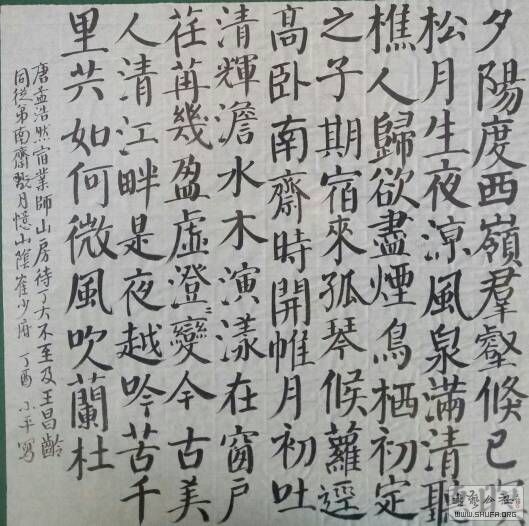 夕陽度西嶺羣壑倏已
松月生夜涼風泉滿清聽
樵人歸欲盡煙鳥栖初定
之子期宿來孤琴候蘿逕
高卧南齋時開帷月初吐
清輝澹水木演漾在窗戶
荏苒幾盈虛澄々變今古美
人清江畔是夜越吟苦千
里共如何微風吹蘭杜
唐孟浩然宿業師山房待丁大不至及王昌齡
同從弟南齋翫月憶山陰崔少府 丁酉 小平寫
书艺公社
WWW.SHUFA.ORG